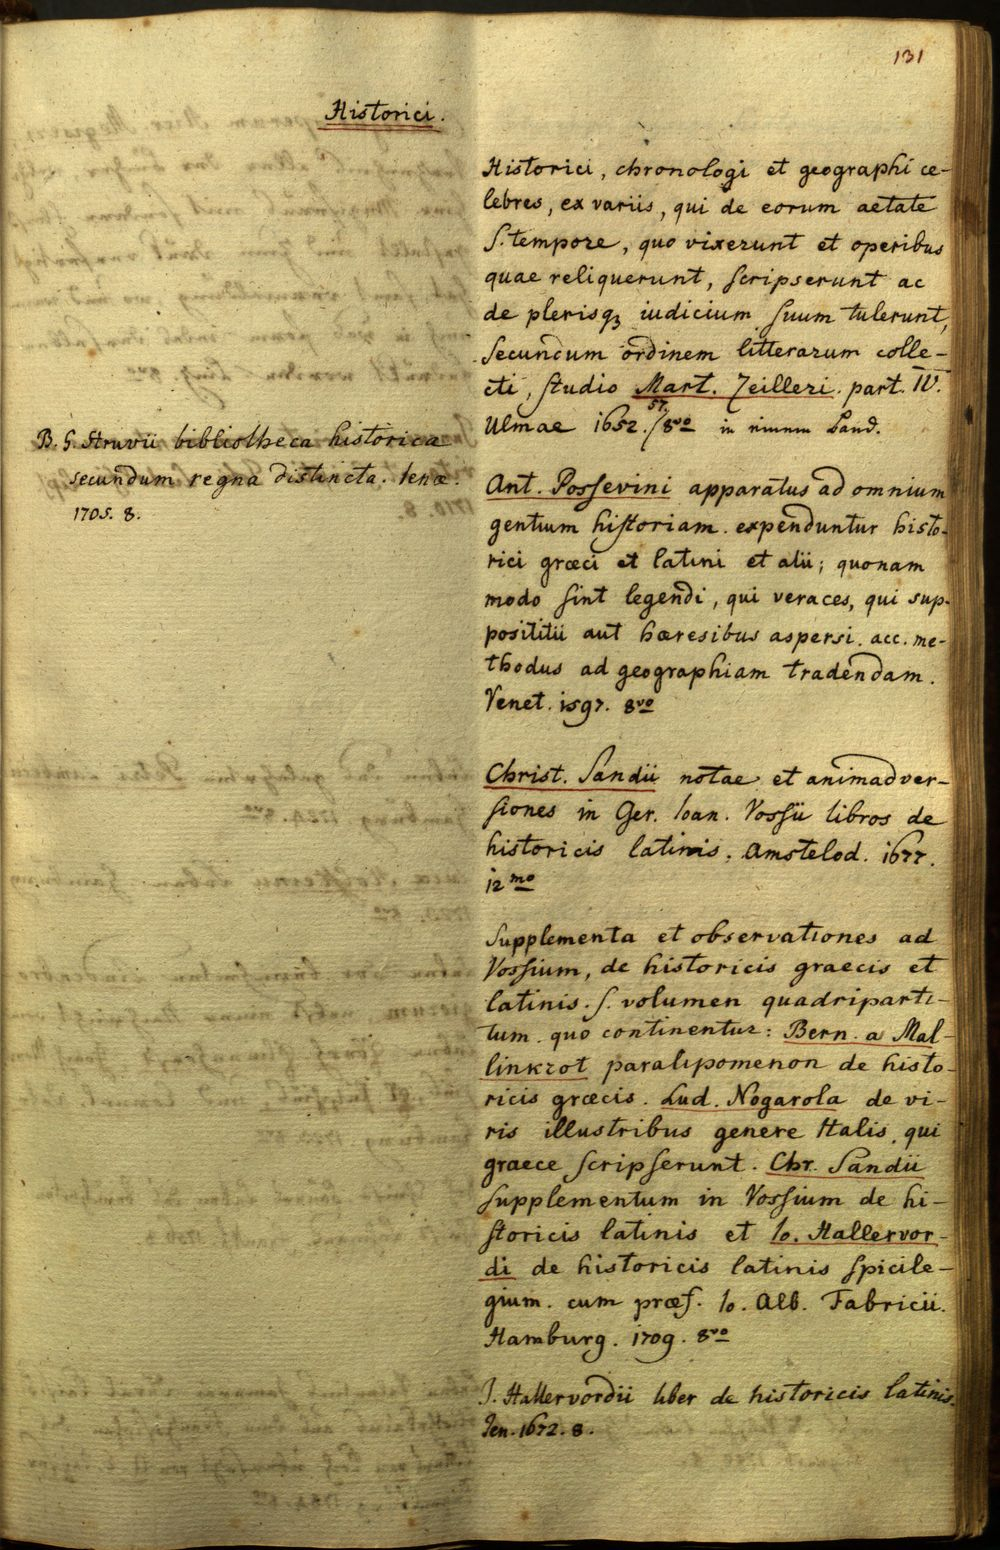 131
Historici.
Historici, chronologi et geographi ce-
lebres, ex variis, qui de eorum aetate
s. tempore, quo vixerunt et operibus
quae reliquerunt, scripserunt ac
de plerisqꝫ iudicium suum tulerunt,
secundum ordinem litterarum colle-
cti, studio Mart. Zeilleri. part. IV.
57.
Ulmae 1652./8vo in einem Band.
B. G. Struvii bibliotheca historica
secundum regna distincta. Ienæ.
1705. 8.
Ant. Possevini apparatus ad omnium
gentium historiam. expenduntur histo-
rici græci et latini et alii; quonam
modo sint legendi, qui veraces, qui sup-
posititii aut hæresibus aspersi. acc. me-
thodus ad geographiam tradendam.
Venet. 1597. 8vo
Christ. Sandii notae et animadver-
siones in Ger. Ioan. Vossii libros de
historicis latinis. Amstelod. 1677.
12mo
Supplementa et observationes ad
Vossium, de historicis graecis et
latinis. s. volumen quadriparti-
tum. quo continentur: Bern. a Mal-
linkrot paralipomenon de histo-
ricis græcis. Lud. Nogarola de vi-
ris illustribus genere Italis, qui
graece scripserunt. Chr. Sandii
supplementum in Vossium de hi-
storicis latinis et Io. Hallervor-
di de historicis latinis spicile-
gium. cum præf. Io. Alb. Fabricii.
Hamburg. 1709. 8vo
J. Hallervordii liber de historicis latinis.
Jen. 1672. 8.